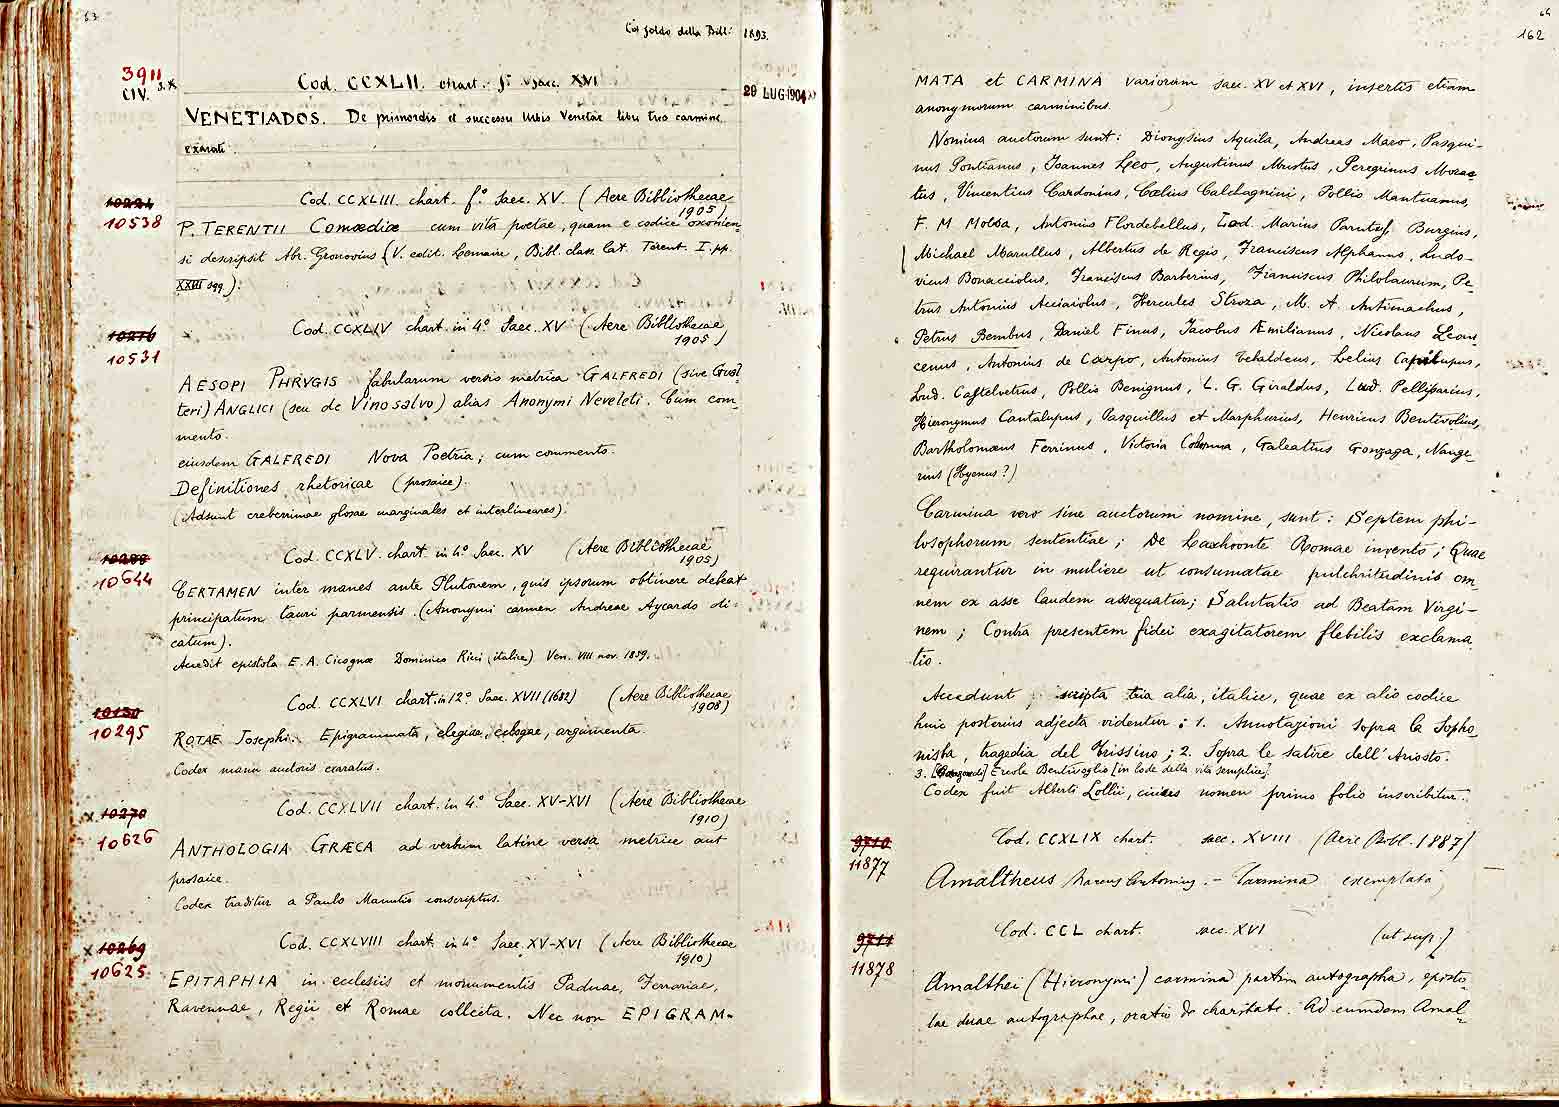 63
Coi fondo della Bibl: 1893.
3911
CIV. 3.*
Cod. CCXLII. chart. f.º saec. XVI
29 LUG. 1904
VENETIADOS. De primordis et successu Urbis Venetae libri tres carmine
exarati.
10224
10538
Cod. CCXLIII chart. f.º Saec. XV. (Aere Bibliothecae
1905)
P. TERENTII Comœdiæ cum vita poetae, quam e codice oxonien-
si descripsit Abr. Gronovius (V. edit. Lemaire, Bibl. class. lat. Terent. I. pp.
XXIII sgg.).
10216
10531
Cod. CCXLIV chart. in 4.º Saec. XV (Aere Bibliothecae
1905)
AESOPI PHRYGIS fabularum versio metrica GALFREDI (sive Gual-
teri) ANGLICI (seu de Vinosalvo) alias Anonymi Neveleti. Cum com-
mento.
eiusdem GALFREDI Nova Poetria; cum commento.
Definitiones rhetoricae (prosaice).
(Adsunt creberrimae glosae marginales et interlineares).
10288
10644
Cod. CCXLV. chart. in 4.º Saec. XV (Aere Bibliothecae
1905)
CERTAMEN inter manes ante Plutonem, quis ipsorum obtinere debeat
principatum tauri parmensis. (Anonymi carmen Andreae Aycardo di-
catum).
Accedit epistola E. A. Cicognæ Dominico Ricci (italice) Ven. VIII nov. 1859.
10130
10295
Cod. CCXLVI chart. in 12.º Saec. XVII (1682) (Aere Bibliothecae
1908)
ROTAE Josephi. Epigrammata, elegiae, eclogae, argumenta.
Codex manu auctoris exaratus.
x 10270
10626
Cod. CCXLVII chart. in 4.º Saec. XV-XVI (Aere Bibliothecae
1910)
ANTHOLOGIA GRÆCA ad verbum latine versa metrice aut
prosaice.
Codex traditur a Paulo Manutio conscriptus.
x 10269
10625
Cod. CCXLVIII chart. in 4º Saec. XV-XVI (Aere Bibliothecae
1910)
EPITAPHIA in ecclesiis et monumentis Paduae, Ferrariae,
Ravennae, Regii et Romae collecta. Nec non EPIGRAM-
64
162
MATA et CARMINA variorum saec. XV et XVI, insertis etiam
anonymorum carminibus.
Nomina auctorum sunt: Dionysius Aquila, Andreas Maro, Pasqui-
nus Pontianus, Joannes Leo, Augustinus Mustus, Peregrinus Morae-
tus, Vincentius Cardonius, Cœlius Calchagnini, Pollio Mantuanus,
F. M Molsa, Antonius Flordebellus, Lod. Marius Parutus, Burgius,
Michael Marullus, Albertus de Regio, Franciscus Alphanus, Ludo-
vicus Bonacciolus, Franciscus Barberius, Franciscus Philolaurum, Pe-
trus Antonius Acciaiolus, Hercules Stroza, M. A. Antimachus,
Petrus Bembus, Daniel Finus, Jacobus Æmilianus, Nicolaus Leoni-
cenus, Antonius de Carpo, Antonius Tebaldeus, Lelius Capilupus,
Lud. Castelvetrus, Pollio Benignus, L. G. Giraldus, Lud. Pelliparius,
Hieronymus Cantalupus, Pasquillus et Marphurius, Henricus Bentivolius,
Bartholomæus Ferrinus, Victoria Colonna, Galeattus Gonzaga, Nauge-
rius (Hyenus?)
Carmina vero sine auctorum nomine, sunt: Septem phi-
losophorum sententiae; De Laochoonte Romae invento; Quae
requirantur in muliere ut consumatae pulchritudinis om-
nem ex asse laudem assequatur; Salutatio ad Beatam Virgi-
nem; Contra presentem fidei exagitatorem flebilis exclama
tio.
Accedunt scripta tria alia, italice, quae ex alio codice
huic posterius adjecta videntur: 1. Annotazioni sopra la Sopho-
nisba, tragedia del Trissino; 2. Sopra le satire dell'Ariosto.
3. Ercole Bentivoglio [in lode della vita semplice].
Codex fuit Alberti Lollii, cuius nomen primo folio inscribitur.
9710
11877
Cod. CCXLIX chart. saec. XVIII (Aere Bibl. 1887)
Amaltheus Marcus Antonius. – Carmina exemplata
9711
11878
Cod. CCL chart. saec. XVI (ut sup.)
Amalthei (Hieronymi) carmina partim autographa, episto-
lae duae autographae, oratio de charitate. Ad eumdem Amal-